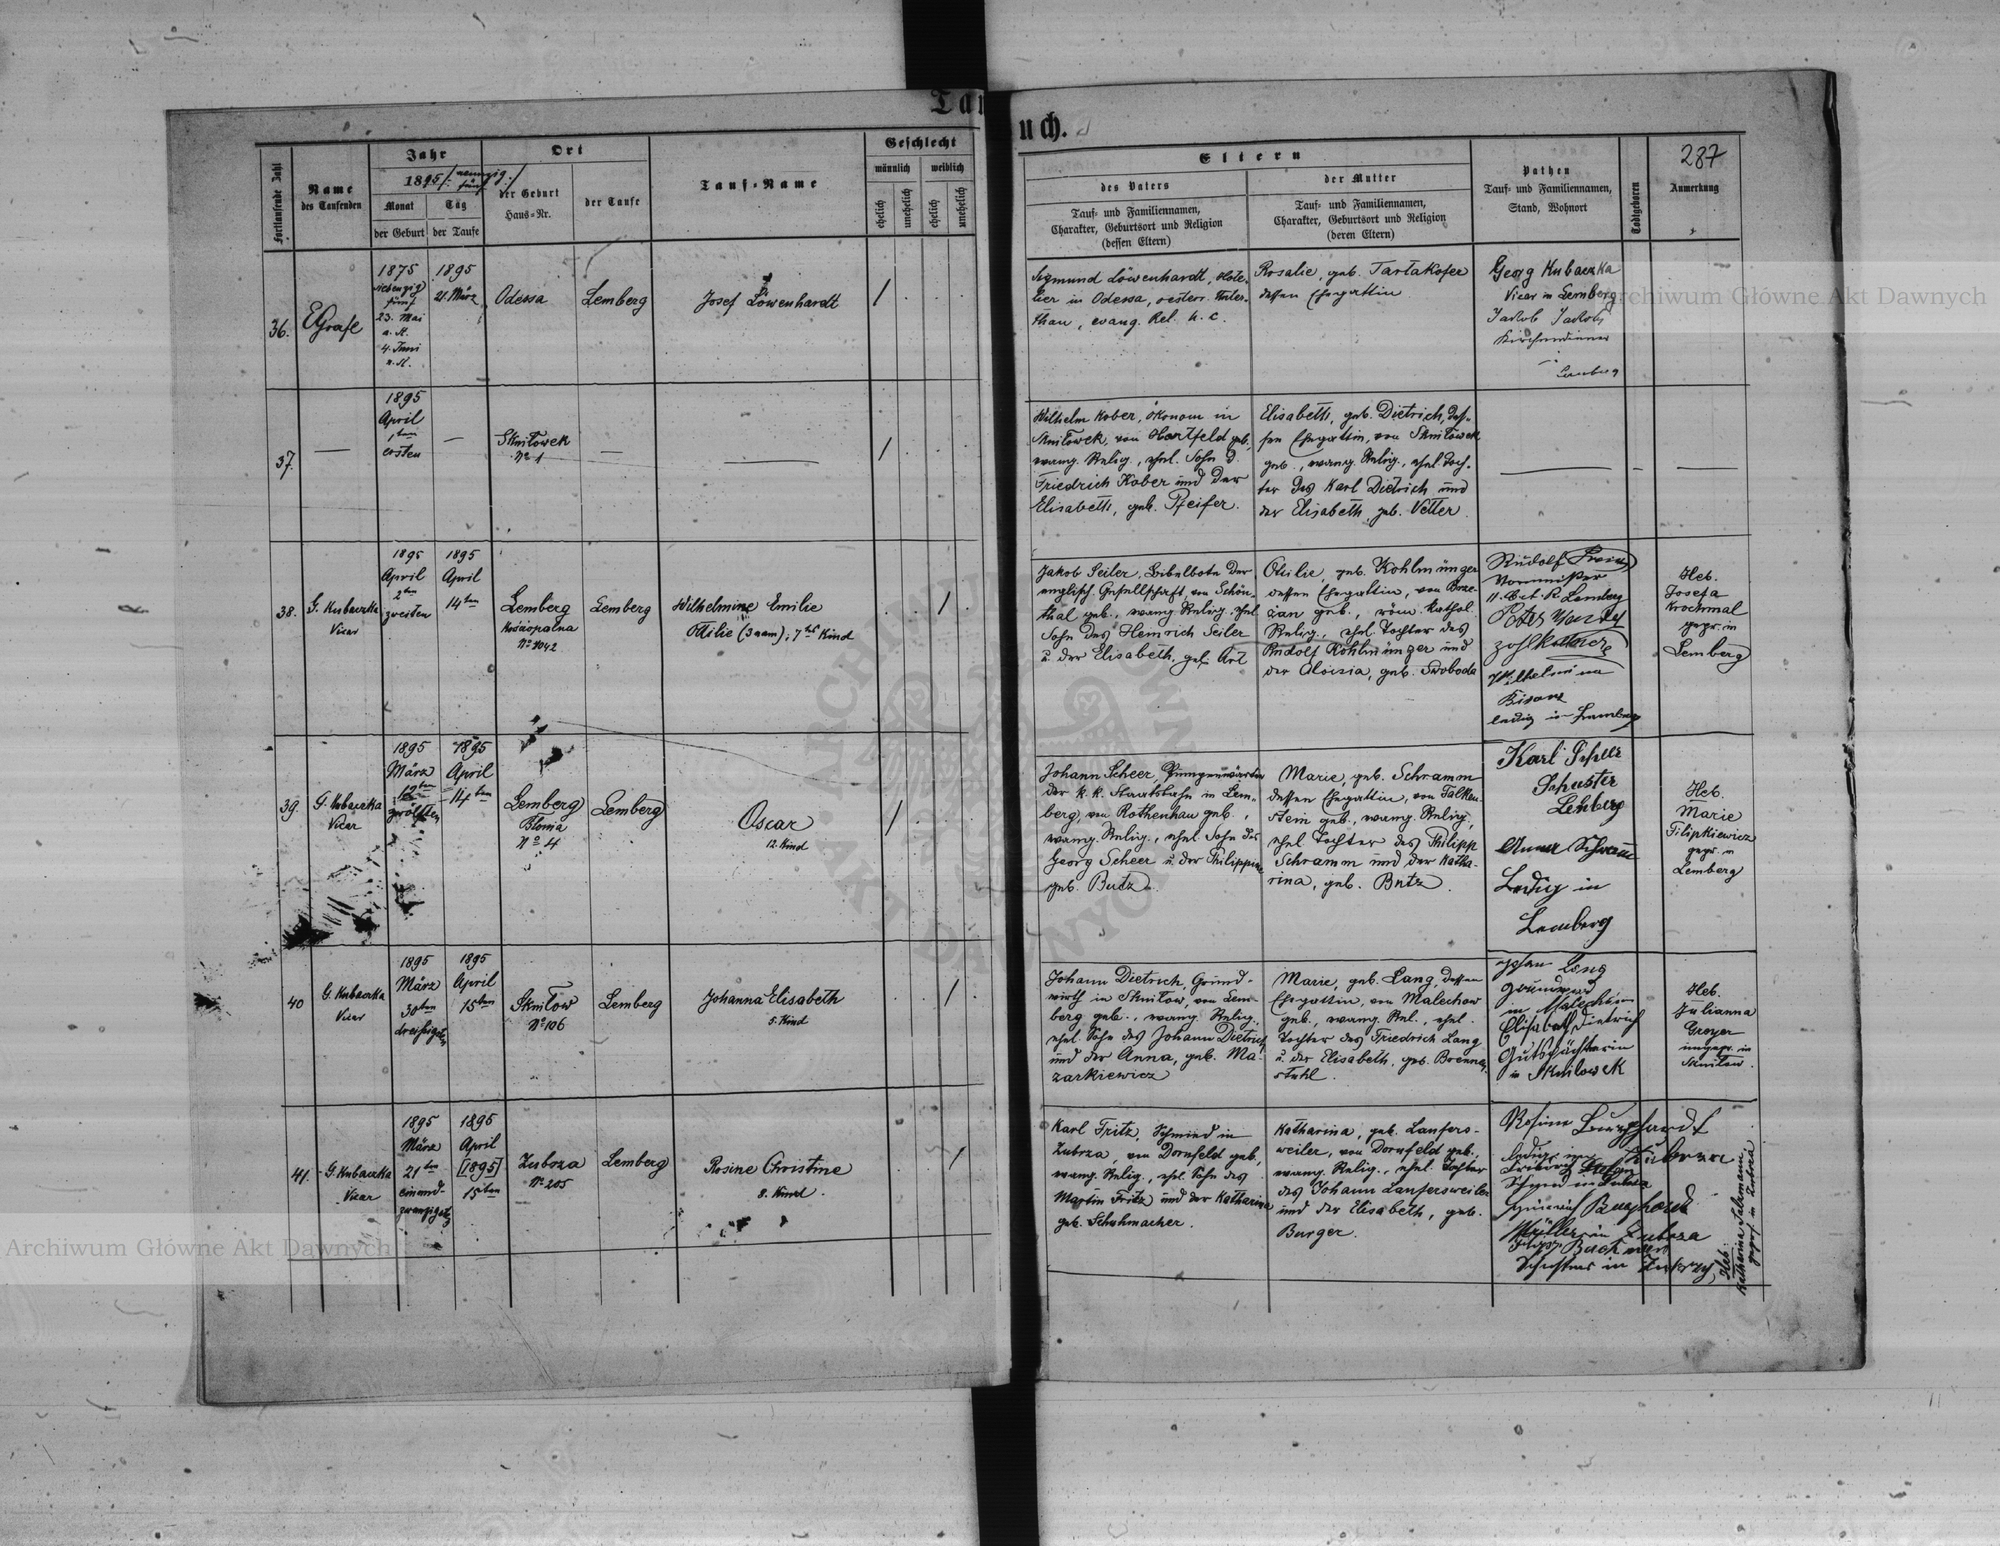 Tau
uch.
287
Fortlaufende Zahl
Name
des Taufenden
Jahr
1895 /: neunzig fünf :/
Monat
Tag
der Geburt
der Taufe
Ort
der Geburt
Haus-Nr.
der Taufe
Tauf-Name
Geschlecht
männlich
weiblich
ehelich
unehelich
ehelich
unehelich
Eltern
des Vaters
Tauf- und Familiennamen,
Charakter, Geburtsort und Religion
(dessen Eltern)
der Mutter
Tauf- und Familiennamen,
Charakter, Geburtsort und Religion
(deren Eltern)
Pathen
Tauf- und Familiennamen,
Stand, Wohnort
Todtgeboren
Anmerkung
36.
EGrafe
1875
siebenzig
fünf
23. Mai
a. St.
4. Juni
n. St.
1895
21. März
Odessa
Lemberg
Josef Löwenhardt
Sigmund Löwenhardt, Hote-
lier in Odessa, oesterr. Unter-
than, evang. Rel. h. c.
Rosalie, geb. Tartakofer
dessen Ehegattin
Georg Kubaczka
Vicar in Lemberg
Jakob
Kirchendiener
Lemberg
37.
1895
April
1ten
ersten
—
Skniłowek
No 1
—
Wilhelm Kober, Ökonom in
Skniłowek, von Hartfeld geb.,
evang. Relig., ehel. Sohn d.
Friedrich Kober und der
Elisabeth, geb. Pfeifer.
Elisabeth, geb. Dietrich, des-
sen Ehegattin, von Skniłowek
geb., evang. Relig., ehel. Toch-
ter des Karl Dietrich und
der Elisabeth, geb. Vetter.
38.
G. Kubaczka
Vicar
1895
April
2ten
zweiten
1895
April
14ten
Lemberg
No 1042
Lemberg
Wilhelmine Emilie
Ottilie (3 nam); 7tes Kind
Jakob Seiler, Bibelbote der
englisch. Gesellschaft, von Schön-
thal geb., evang. Relig. ehel.
Sohn des Heinrich Seiler
u. der Elisabeth, geb. Art
Otilie, geb. Kohlmünzer
dessen Ehegattin, von Brze-
żan geb., röm. kathol.
Relig., ehel. Tochter des
Rudolf Kohlmünzer und
der Aloisia, geb. Swoboda
Rudolf
Lemberg
Peter
Wilhelmina
ledig in Lemberg
Heb.
Josefa
Krochmal
gepr. in
Lemberg
39.
G. Kubaczka
Vicar
1895
März
12ten
zwölften
1895
April
14ten
Lemberg
Błonia
No 4
Lemberg
Oscar
12. Kind
Johann Scheer,
der k. k. Staatsbahn in Lem-
berg, von Rothenhan geb.,
evang. Relig., ehel. Sohn des
Georg Scheer u. der Philippine
geb. Butz.
Marie, geb. Schramm
dessen Ehegattin, von Falken-
stein geb., evang. Relig.,
ehel Tochter des Philipp
Schramm und der Katha-
rina, geb. Butz.
Karl
Schuster
Lemberg
Anna Schramm
Ledig in
Lemberg
Heb.
Marie
Filipkiewicz
gepr. in
Lemberg
40
G. Kubaczka
Vicar
1895
März
30ten
dreißigsten
1895
April
15ten
Skniłow
No 106
Lemberg
Johanna Elisabeth
5. Kind
Johann Dietrich, Grund-
wirth in Skniłow, von Lem-
berg geb., evang. Relig.
ehel. Sohn des Johann Dietrich
und der Anna, geb. Ma-
zarkiewicz
Marie, geb. Lang, dessen
Ehegattin, von Malechow
geb., evang. Rel., ehel.
Tochter des Friedrich Lang
u. der Elisabeth, geb. Brenn-
stuhl.
Johan Lang
in Malechów
Elisabeth Dietrich
Gutspächterin
in Skniłowek
Heb.
Julianna
Greyer
ungepr. in
Skniłow.
41.
G. Kubaczka
Vicar
1895
März
21ten
einund-
zwanzigsten
1895
April
[1895]
15ten
Zubrza
No 205
Lemberg
Rosine Christine
8. Kind.
Karl Fritz, Schmied in
Zubrza, von Dornfeld geb.,
evang. Relig., ehel. Sohn des
Martin Fritz und der Katharina
geb. Schuhmacher.
Katharina, geb. Lanfers-
weiler, von Dornfeld geb.,
evang. Relig., ehel. Tochter
des Johann Lanfersweiler
und der Elisabeth, geb.
Burger.
Rosina Burghardt
Müller in Zubrza
Heb.
Katharina Salzmann,
gepr. in Zubrza
Archiwum Główne Akt Dawnych
Archiwum Główne Akt Dawnych